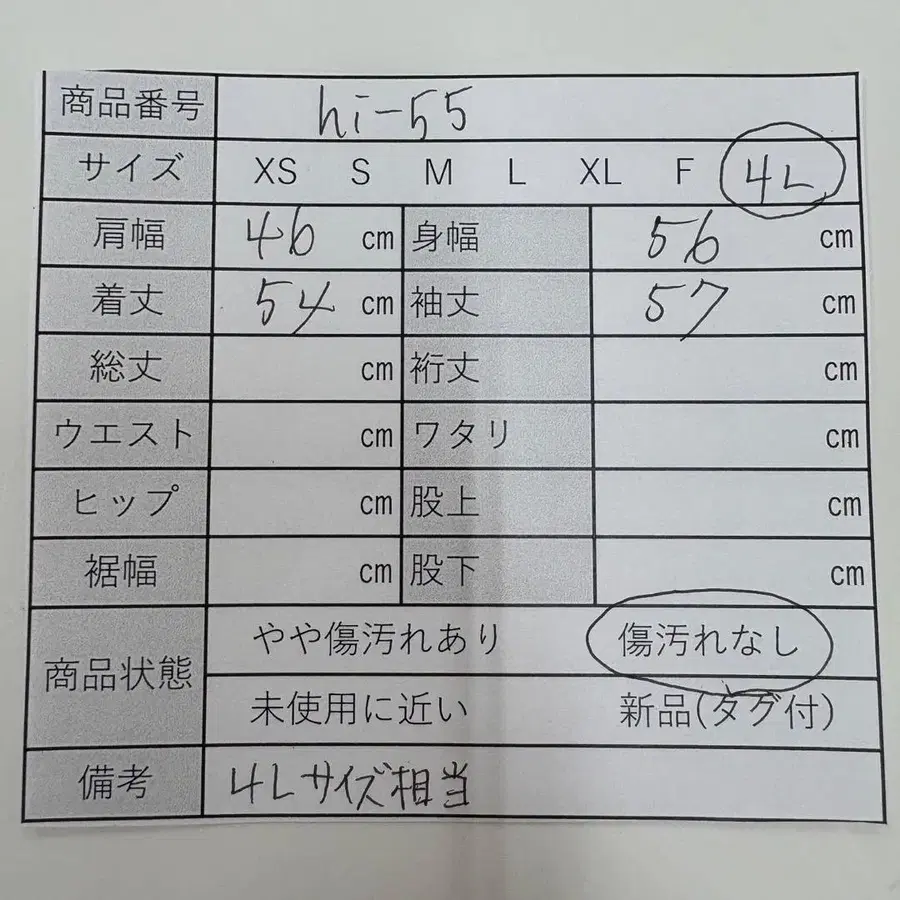 商品番号 hi-55
サイズ XS S M L XL F 4L
肩幅 46 cm 身幅 56 cm
着丈 54 cm 袖丈 57 cm
総丈 cm 裄丈 cm
ウエスト cm ワタリ cm
ヒップ cm 股上 cm
裾幅 cm 股下 cm
商品状態
やや傷汚れあり 傷汚れなし
未使用に近い 新品(タグ付)
備考 4Lサイズ相当